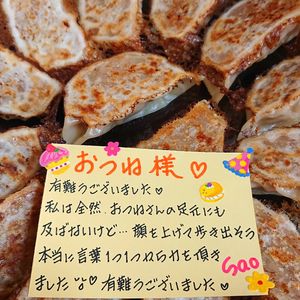 おつね様♡
有難うございました♡
私は全然、おつねさんの足元にも
及ばないけど…顔を上げて歩き出そう
本当に言葉1つ1つねられを頂き
ました♡有難うございました♡
Sao